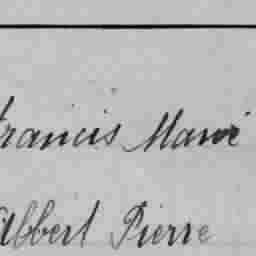 Francis Marie
Albert Pierre